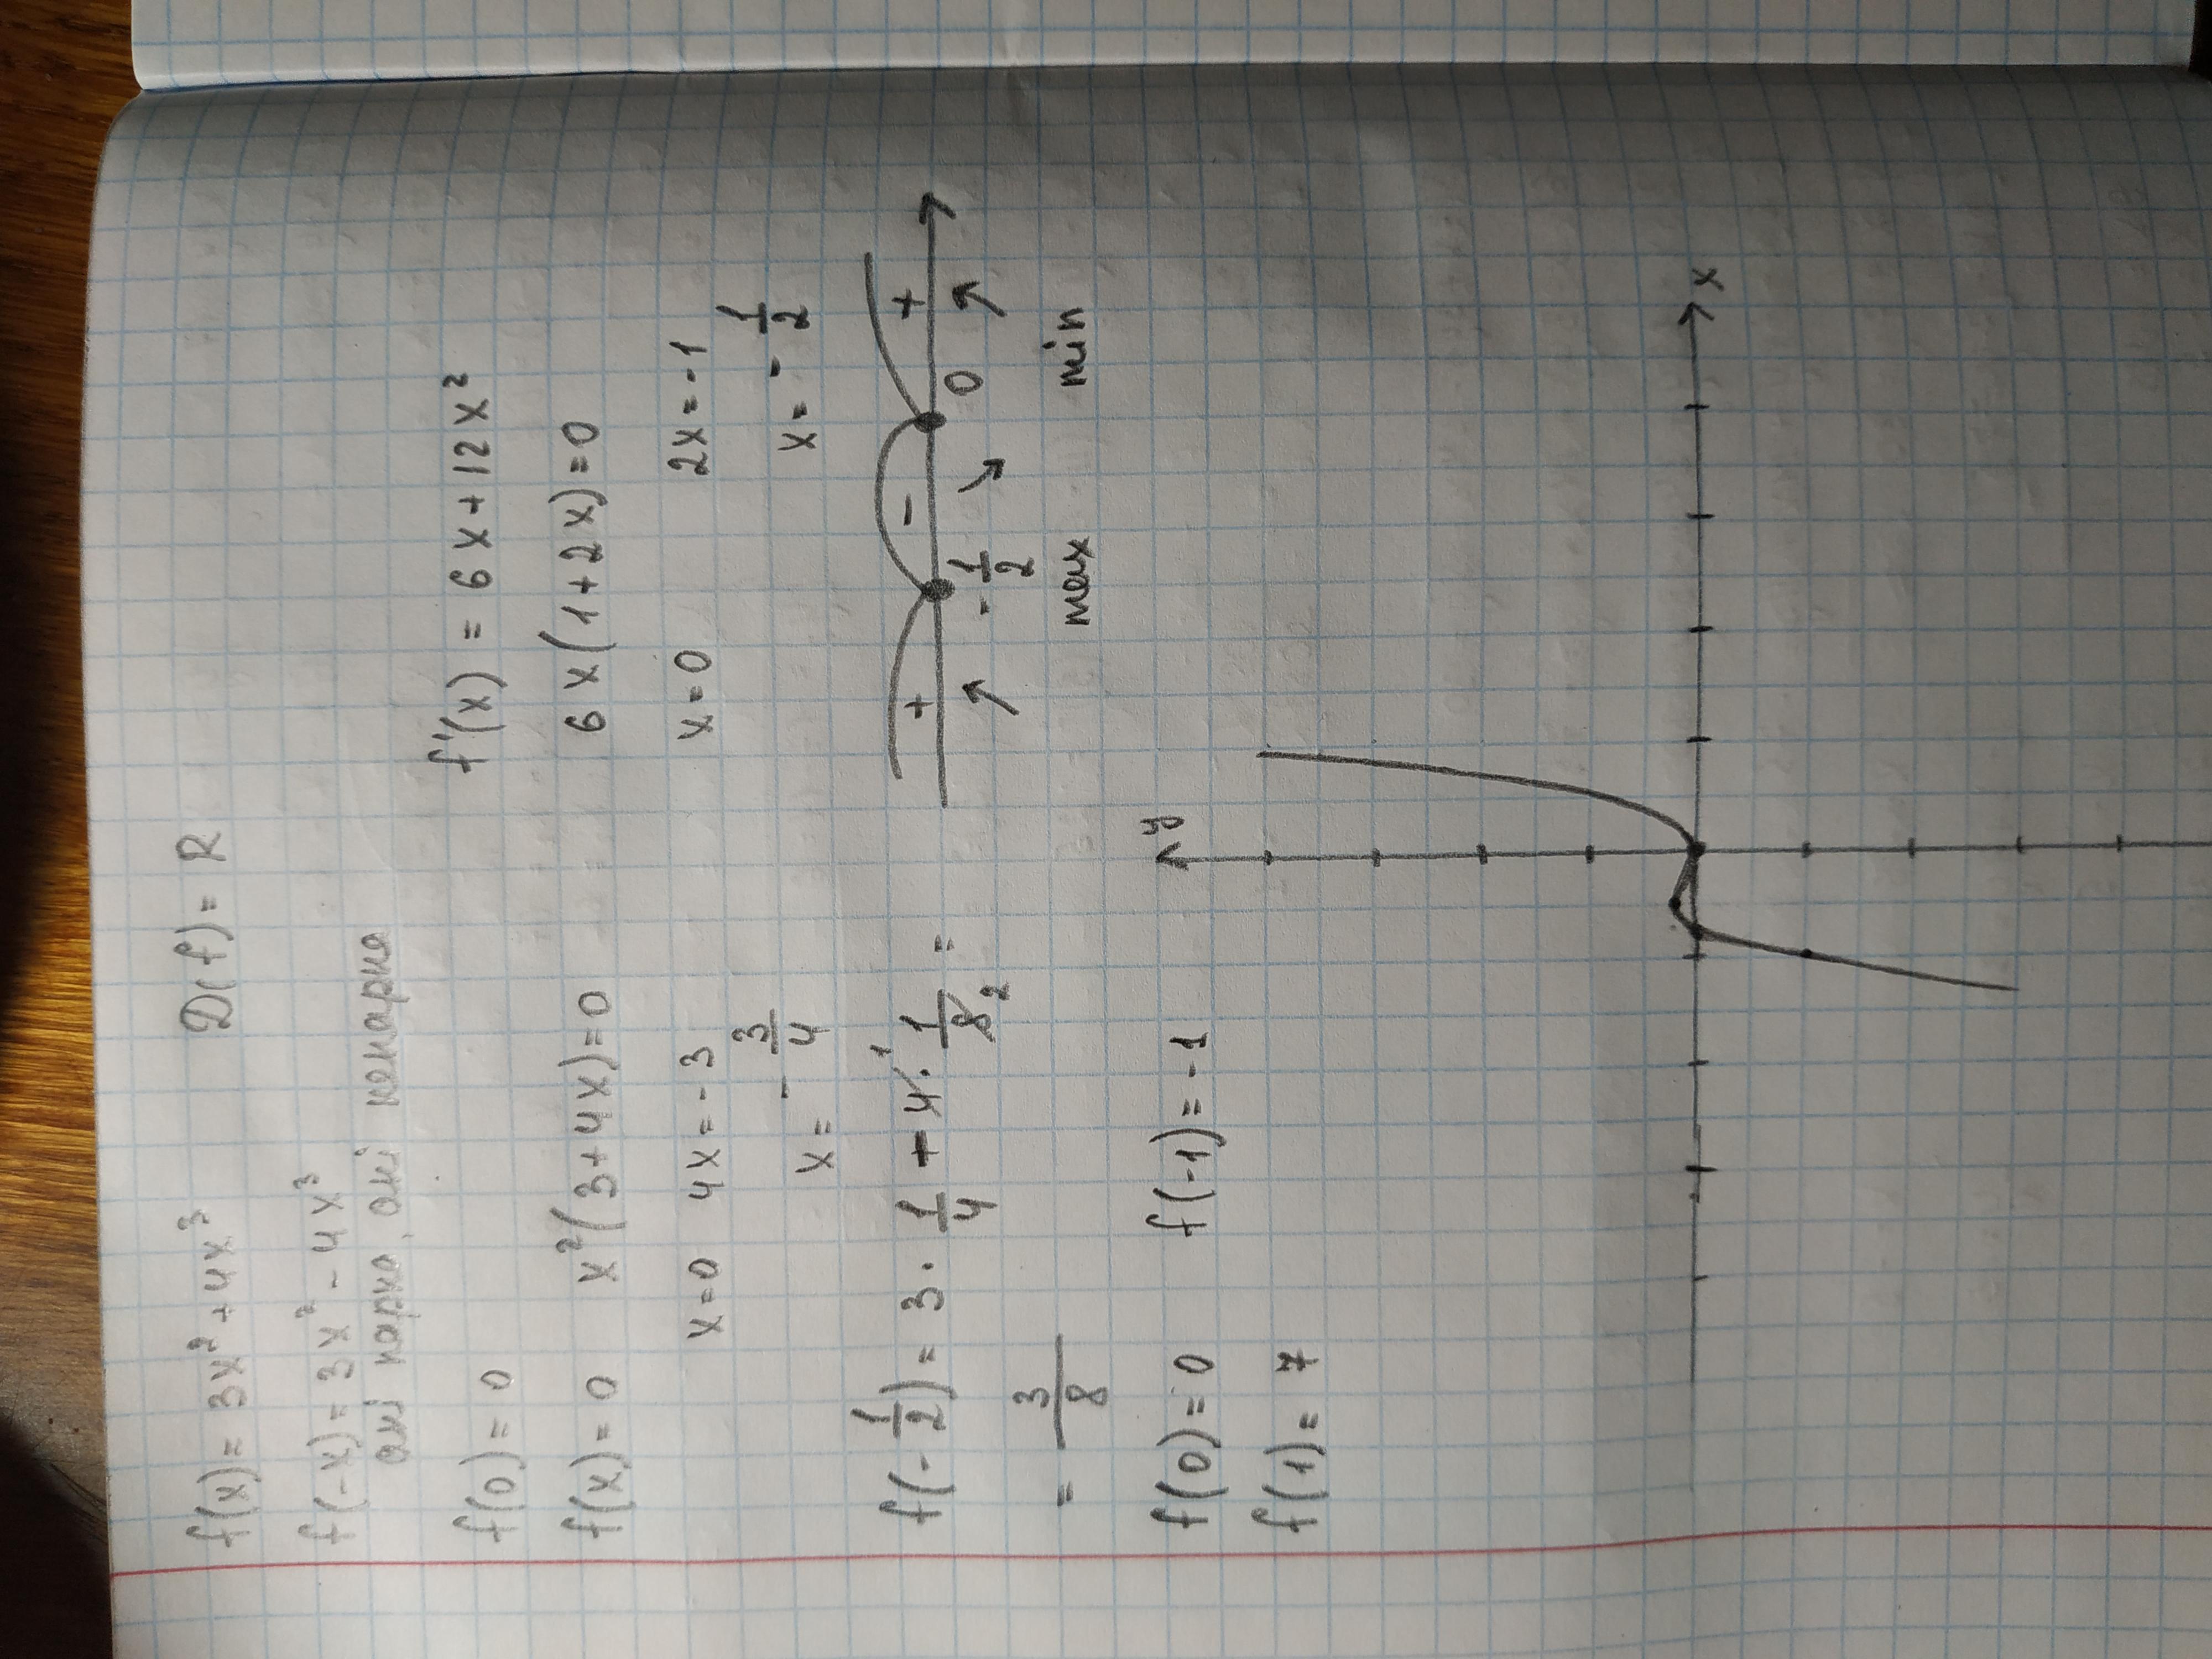 f(x) = 3x² + 4x³ D(f) = R
f(-x) = 3x² - 4x³
ані парна, ані непарна
f'(x) = 6x + 12x²
f(0) = 0
f(x) = 0 x²(3+4x)=0 6x(1+2x)=0
x=0 4x=-3 x=0 2x=-1
x = -3/4 x = -1/2
f(-1/2) = 3 · 1/4 - 4¹ · 1/8₂ =
+ - +
-1/2 0
= 3/8
max min
f(0) = 0 f(-1) = -1
f(1) = 7
y
x